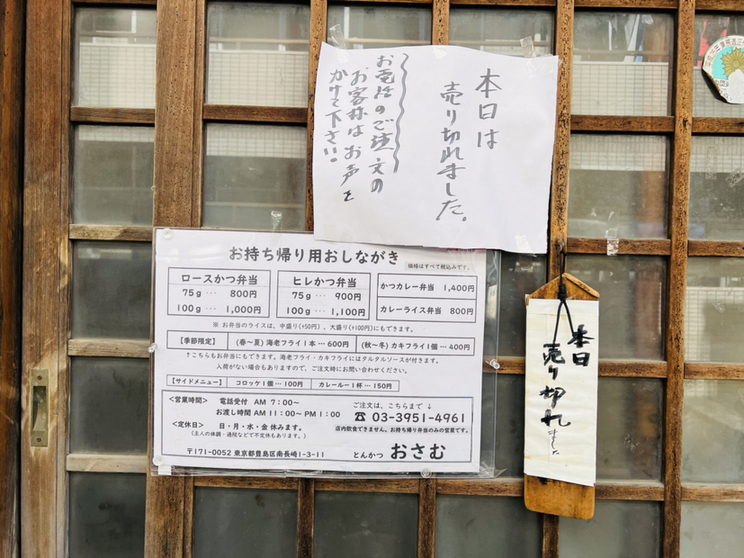 本日は
売り切れました。
お電話のご注文の
お客様はお声を
かけて下さい。
お持ち帰り用おしながき
価格はすべて税込みです。
ロースかつ弁当
75g … 800円
100g … 1,000円
ヒレかつ弁当
75g … 900円
100g … 1,100円
かつカレー弁当 1,400円
カレーライス弁当 800円
※ お弁当のライスは、中盛り(+50円)、大盛り(+100円)にもできます。
【季節限定】
(春〜夏) 海老フライ1本…600円
(秋〜冬) カキフライ1個…400円
↑こちらもお弁当にもできます。海老フライ・カキフライにはタルタルソースが付きます。
入荷がない場合もありますので、ご注文時にお問い合わせください。
【サイドメニュー】
コロッケ1個…100円
カレールー1杯…150円
<営業時間>
電話受付 AM 7:00〜
お渡し時間 AM 11:00〜PM 1:00
<定休日>
日・月・水・金 休みます。
(主人の体調・通院などで不定休もあります。)
ご注文は、こちらまで ↓
☎ 03-3951-4961
店内飲食できません。お持ち帰り弁当のみの営業です。
〒171-0052 東京都豊島区南長崎1-3-11
とんかつ おさむ
本日
売り切れ
ました